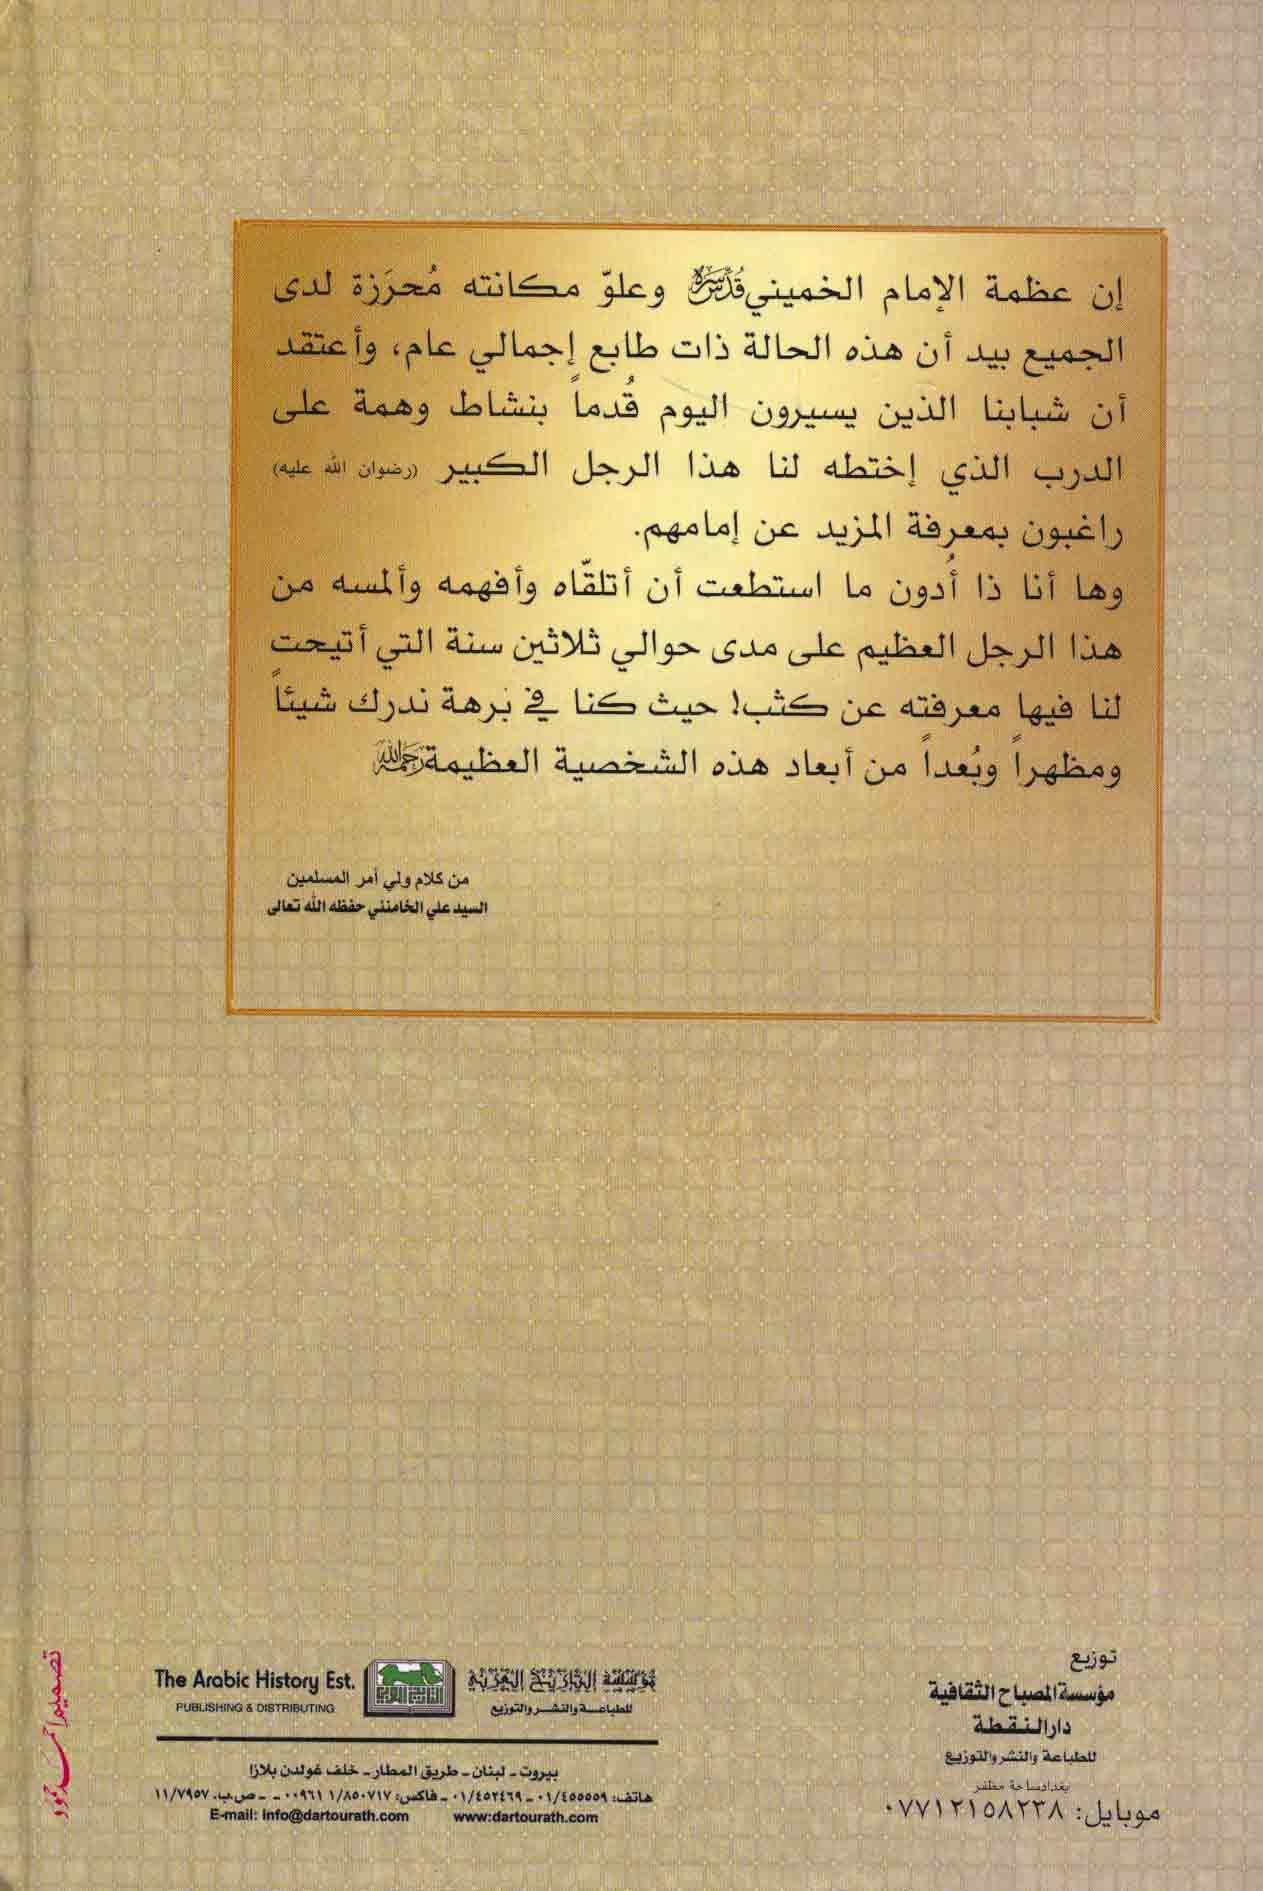 إن عظمة الإمام الخميني قدس سره وعلوّ مكانته مُحرَزة لدى
الجميع بيد أن هذه الحالة ذات طابع إجمالي عام، وأعتقد
أن شبابنا الذين يسيرون اليوم قُدماً بنشاط وهمة على
الدرب الذي إختطه لنا هذا الرجل الكبير (رضوان الله عليه)
راغبون بمعرفة المزيد عن إمامهم.
وها أنا ذا أُدون ما استطعت أن أتلقّاه وأفهمه وألمسه من
هذا الرجل العظيم على مدى حوالي ثلاثين سنة التي أتيحت
لنا فيها معرفته عن كثب! حيث كنا في بَرهة ندرك شيئاً
ومظهراً وبُعداً من أبعاد هذه الشخصية العظيمة رحمه الله
من كلام ولي أمر المسلمين
السيد علي الخامنئي حفظه الله تعالى
توزيع
مؤسسة المصباح الثقافية
دار النقطة
للطباعة والنشر والتوزيع
بغداد ساحة مظفر
موبايل: ٠٧٧١٢١٥٨٢٣٨
مؤسسة التاريخ العربي
للطباعة والنشر والتوزيع
التاريخ العربي
The Arabic History Est.
PUBLISHING & DISTRIBUTING
بيروت - لبنان - طريق المطار - خلف غولدن بلازا
هاتف: ٠١/٤٥٥٥٥٩ - ٠١/٤٥٢٤٦٩ - فاكس: ٠٠٩٦١١/٨٥٠٧١٧ - - ص.ب. ١١/٧٩٥٧
E-mail: info@dartourath.com www:dartourath.com